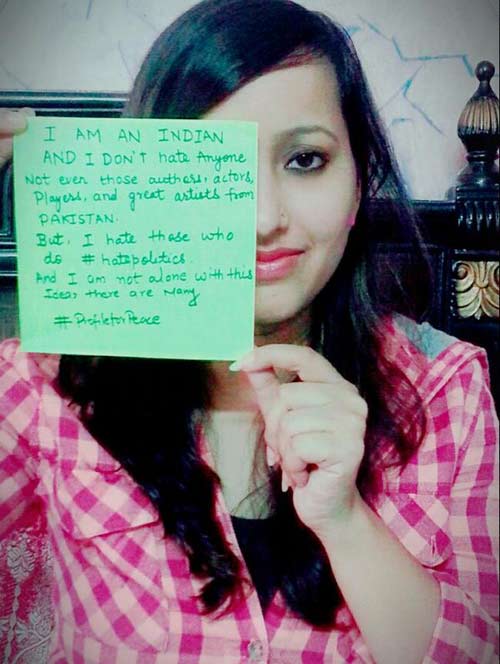 I AM AN INDIAN
AND I DON'T hate Anyone
Not even those authors, actors,
Players, and great artists from
PAKISTAN.
But, I hate those who
do #hatepolitics.
And I am not alone with this
Idea, there are Many
#ProfileforPeace